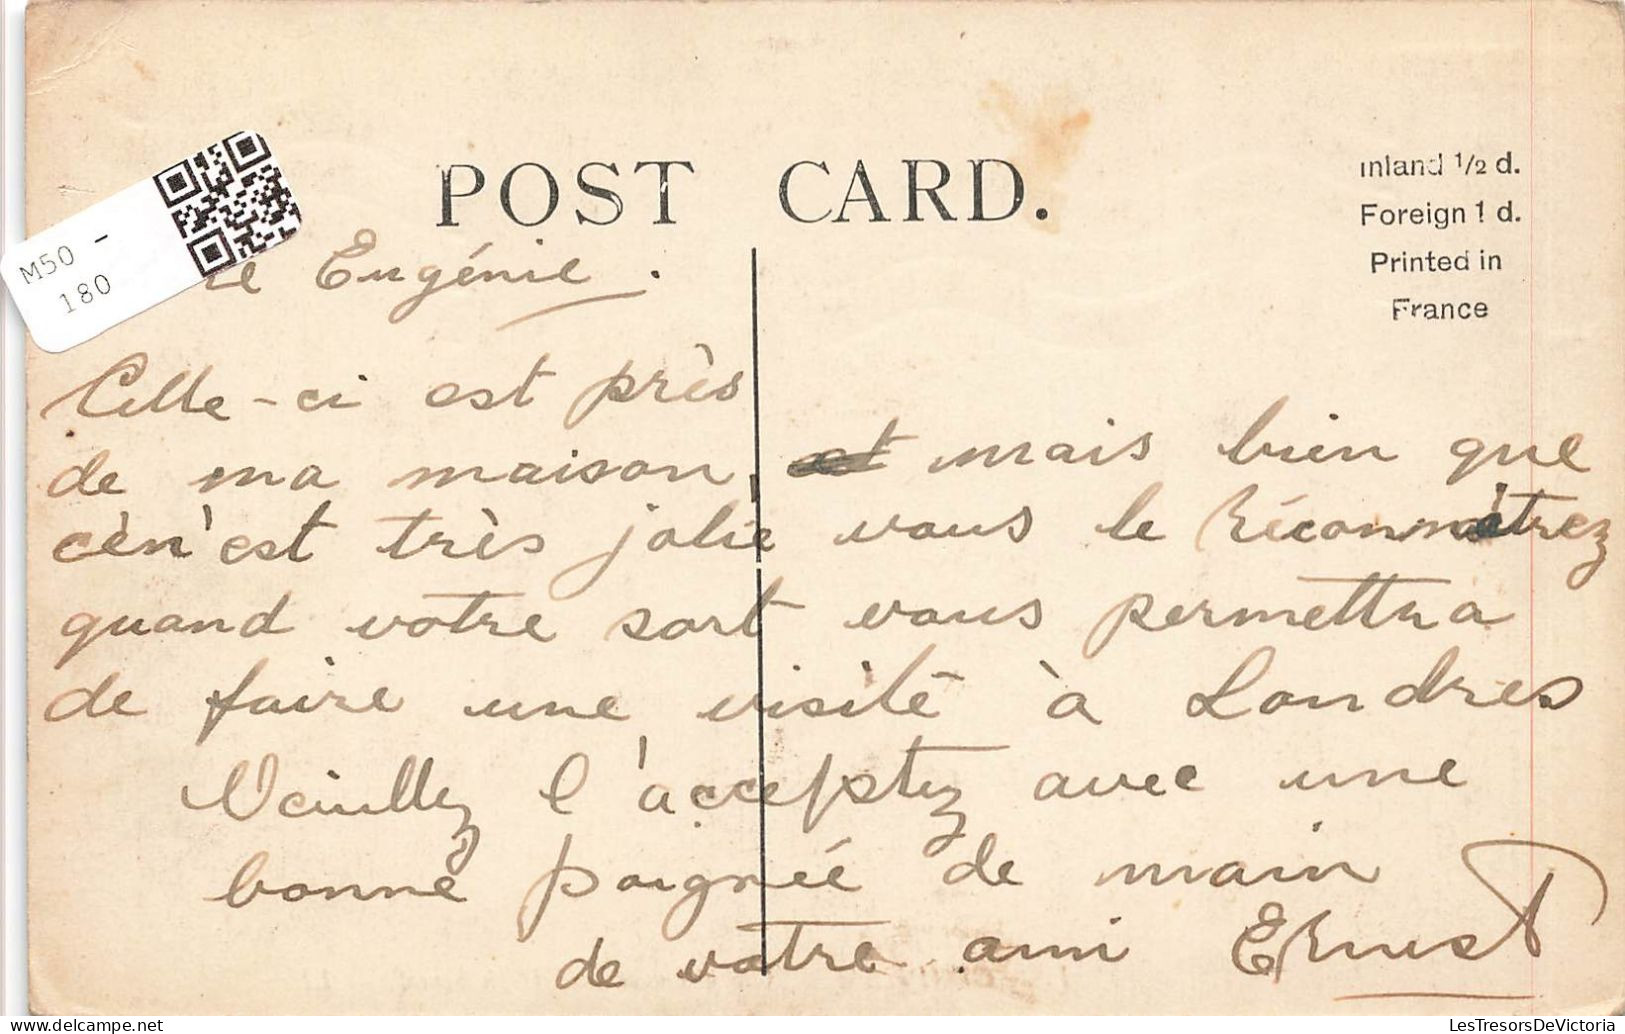 POST CARD.
Inland 1/2 d.
Foreign 1 d.
Printed in
France
M50 -
180
Eugénie.
Celle-ci est près
de ma maison, et mais bien que
cèn'est très jolie vous le réconnaîtrez
quand votre sort vous permettra
de faire une visite à Londres
Veuillez l'acceptez avec une
bonne poignée de main
de votre ami Ernest
LesTresorsDeVictoria